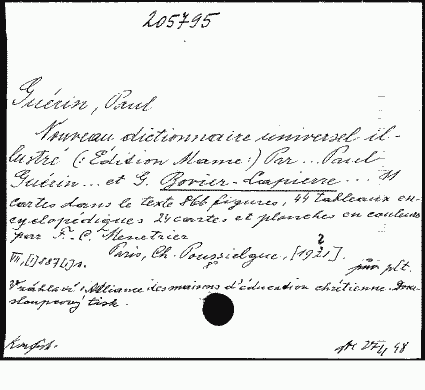 205795
Guérin, Paul
Nouveau dictionnaire universel il-
lustré (: Édition Mame:) Par... Paul
Guérin... et G. Bovier-Lapierre... 11
cartes dans le texte 866 figures, 44 tableaux en-
cyclopédiques 24 cartes et planches en couleurs
par F. C. Menetrier
Paris, Ch. Poussielgue, [1921].
?
VII, [I] 887 [I] s. plt.
V záhlaví: Alliance des maisons d'éducation chrétienne. Dvou-
sloupcový tisk.
48